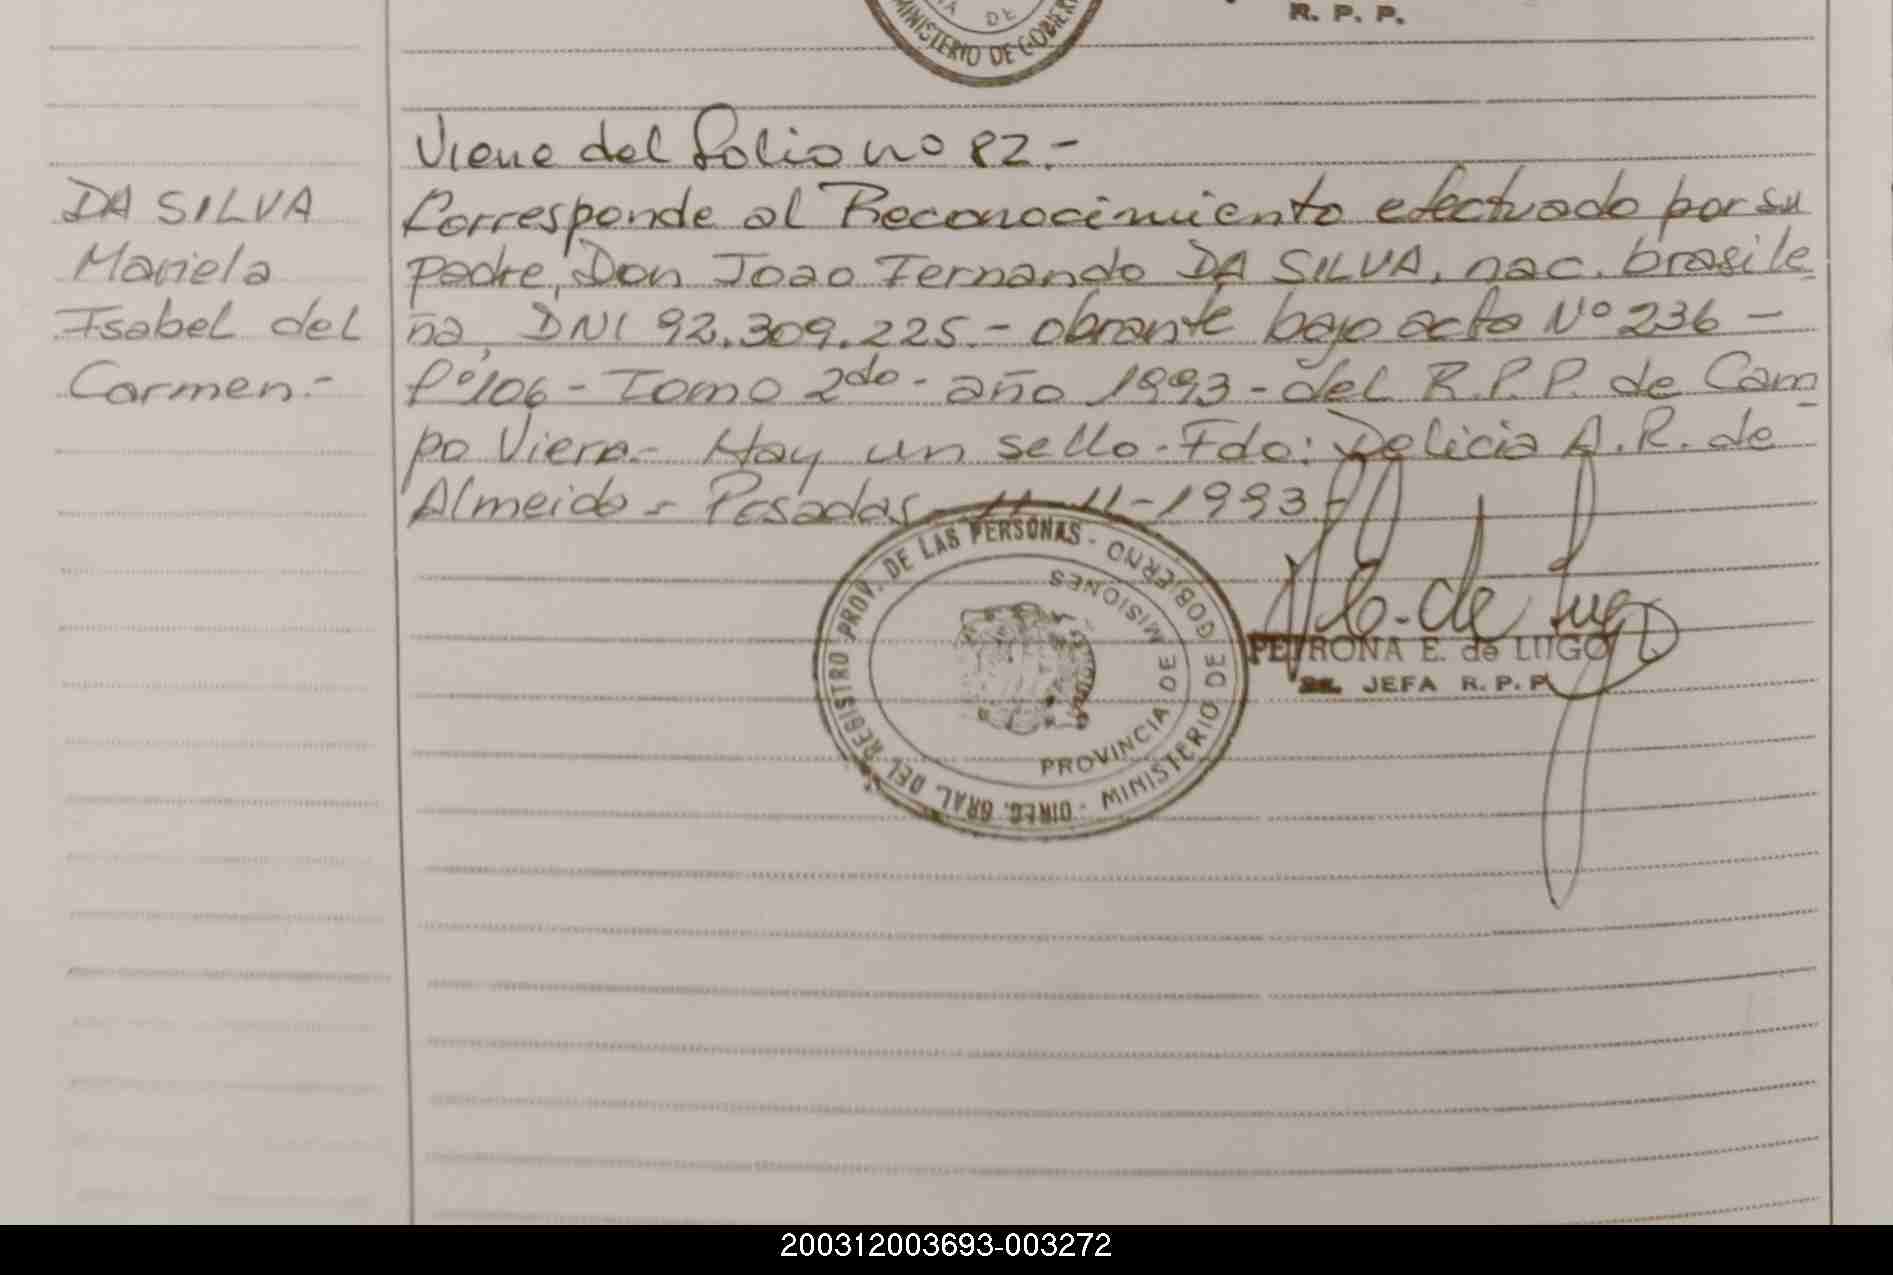 MINISTERIO DE GOBIER
DE
R. P. P.
Viene del folio nº 82.-
DA SILVA
Mariela
Isabel del
Carmen.-
Corresponde al Reconocimiento efectuado por su
padre, Don Joao Fernando DA SILVA, nac. brasile
ña, DNI 92.309.225.- obrante bajo acta Nº 236 -
fº 106 - Tomo 2do - año 1993 - del R.P.P. de Cam
po Viera.- Hay un sello - Fdo: Delicia A.R. de -
Almeida - Posadas - 11-11-1993 -
DIREG. GRAL. DEL REGISTRO PROV. DE LAS PERSONAS - MINISTERIO DE GOBIERNO
PROVINCIA DE MISIONES
de Lugo
PETRONA E. de LUGO
JEFA R. P. P.
200312003693-003272